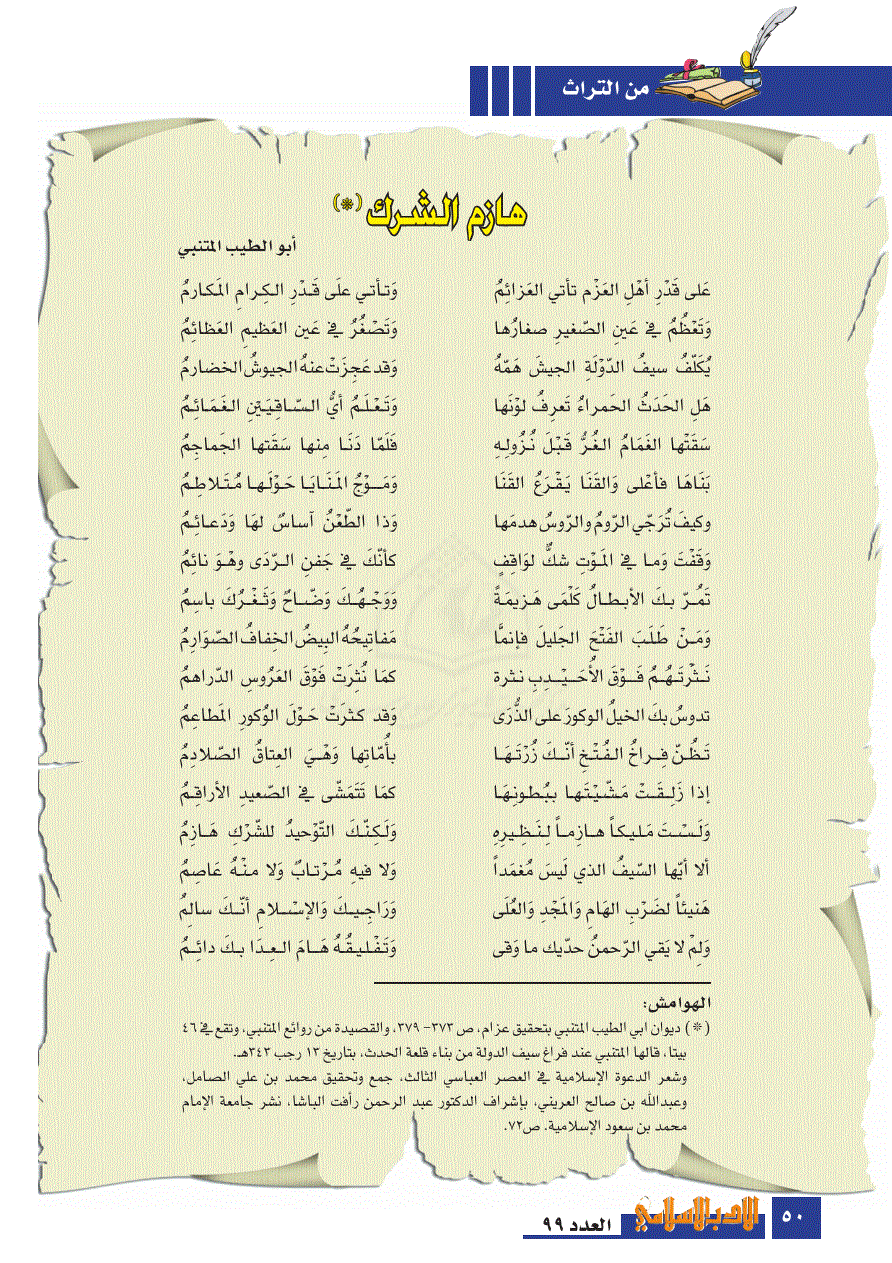 من التراث
هازم الشرك (*)
أبو الطيب المتنبي
عَلى قَدْرِ أهْلِ العَزْم تأتي العَزائِمُ وَتأتي علَى قَدْرِ الكِرامِ المَكارمُ
وَتَعْظُمُ في عَينِ الصّغيرِ صغارُها وَتَصْغُرُ في عَين العَظيمِ العَظائِمُ
يُكَلّفُ سيفُ الدّوْلَةِ الجيشَ هَمّهُ وَقد عَجِزَتْ عنهُ الجيوشُ الخضارمُ
هَلِ الحَدَثُ الحَمراءُ تَعرِفُ لوْنَها وَتَعْلَمُ أيُّ السّاقِيَيْنِ الغَمَائِمُ
سَقَتْها الغَمَامُ الغُرُّ قَبْلَ نُزُولِهِ فَلَمّا دَنَا مِنها سَقَتها الجَماجِمُ
بَنَاهَا فأعْلى وَالقَنَا يَقْرَعُ القَنَا وَمَوْجُ المَنَايَا حَوْلَها مُتَلاطِمُ
وكيفَ تُرَجّي الرّومُ والرّوسُ هدمَها وَذا الطّعْنُ آساسٌ لهَا وَدَعائِمُ
وَقَفْتَ وَما في المَوْتِ شكٌّ لوَاقِفٍ كأنّكَ في جَفنِ الرّدَى وهْوَ نائِمُ
تَمُرّ بكَ الأبطالُ كَلْمَى هَزيمَةً وَوَجْهُكَ وَضّاحٌ وَثَغْرُكَ باسِمُ
وَمَنْ طَلَبَ الفَتْحَ الجَليلَ فإنمَّا مَفاتيحُهُ البيضُ الخِفافُ الصّوَارِمُ
نَثَرْتَهُمُ فَوْقَ الأُحَيْدِبِ نثرة كمَا نُثِرَتْ فَوْقَ العَرُوسِ الدّراهمُ
تدوسُ بكَ الخيلُ الوكورَ على الذُّرَى وَقد كثرَتْ حَوْلَ الوُكورِ المَطاعِمُ
تَظُنّ فِراخُ الفُتْخِ أنّكَ زُرْتَهَا بأُمّاتِها وَهْيَ العِتاقُ الصّلادِمُ
إذا زَلِقَتْ مَشّيْتَها ببُطونِهَا كمَا تَتَمَشّى في الصّعيدِ الأراقِمُ
وَلَسْتَ مَليكاً هازِماً لِنَظِيرِهِ وَلَكِنّكَ التّوْحيدُ للشّرْكِ هَازِمُ
ألا أيّها السّيفُ الذي لَيسَ مُغمَداً وَلا فيهِ مُرْتابٌ وَلا منْهُ عَاصِمُ
هَنيئاً لضَرْبِ الهَامِ وَالمَجْدِ وَالعُلَى وَرَاجِيكَ وَالإسْلامِ أنّكَ سالِمُ
وَلِمْ لا يَقي الرّحمنُ حدّيك ما وَقى وَتَفْليقُهُ هَامَ العِدَا بكَ دائِمُ
الهوامش:
(*) ديوان ابي الطيب المتنبي بتحقيق عزام، ص ٣٧٣- ٣٧٩، والقصيدة من روائع المتنبي، وتقع في ٤٦
بيتا، قالها المتنبي عند فراغ سيف الدولة من بناء قلعة الحدث، بتاريخ ١٣ رجب ٣٤٣هـ.
وشعر الدعوة الإسلامية في العصر العباسي الثالث، جمع وتحقيق محمد بن علي الصامل،
وعبدالله بن صالح العريني، بإشراف الدكتور عبد الرحمن رأفت الباشا، نشر جامعة الإمام
محمد بن سعود الإسلامية. ص٧٢.
٥٠ الأدب الإسلامي العدد ٩٩